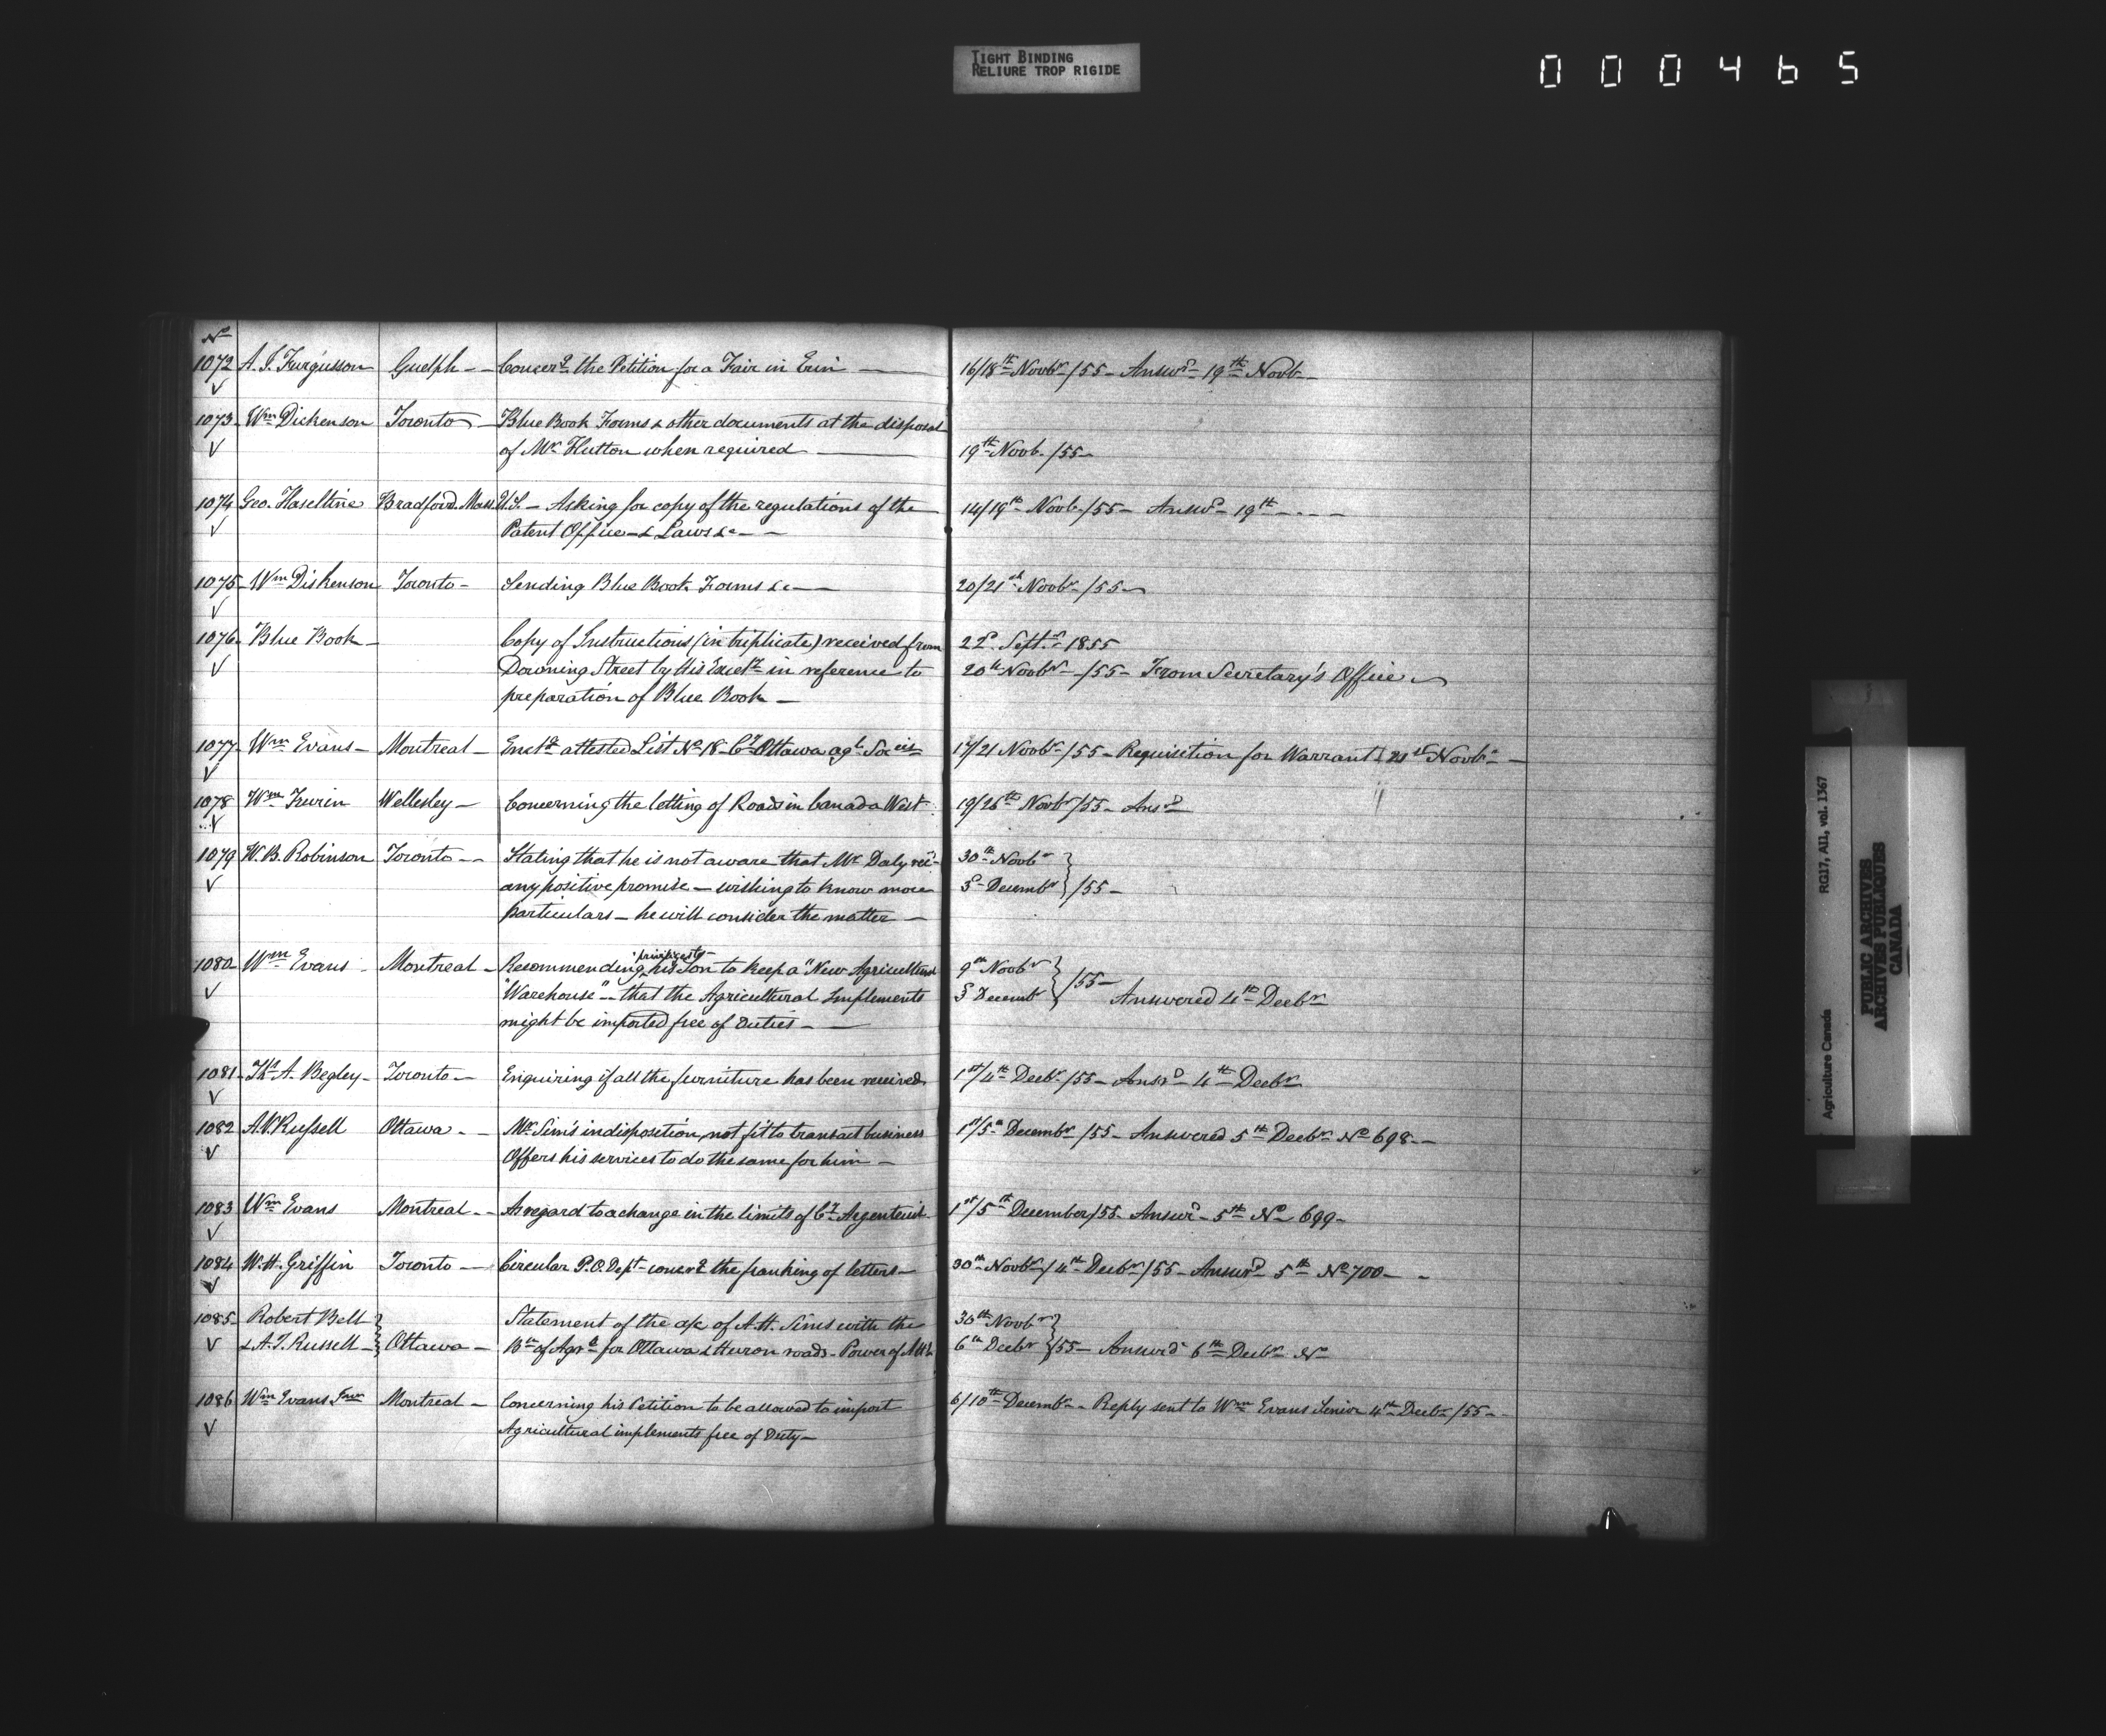 TIGHT BINDING
RELIURE TROP RIGIDE
000465
No
1072 A. J. Furgusson Guelph – Concerg the Petition for a Fair in Erin — 16/18th Novbr /55 – Answd – 19th Novb –
1073 Wm Dickenson Toronto – Blue Book Forms & other documents at the disposal
of Mr Hutton when required — 19th Novb. /55 –
1074 Geo. Haseltine Bradford. Mass. U.S. – Asking for copy of the regulations of the 14/19th Novb /55 – Answd – 19th – – –
Patent Office – & Laws &c – –
1075 Wm Diskenson Toronto – Sending Blue Book Forms &c — 20/21st Novbr /55 –
1076 Blue Book – Copy of Instructions (in triplicate) received from 22d Septr 1855
Downing Street by His Excelly in reference to 20th Novbr – /55 – From Secretary's Office –
preparation of Blue Book –
1077 Wm Evans – Montreal – Enclg attested List No 18 – Cy Ottawa agl. Socies 17/21 Novbr /55 – Requisition for Warrant 21st Novbr –
1078 Wm Wellesley – Concerning the letting of Roads in Canada West – 19/26th Novbr /55 – Ansd
1079 W. B. Robinson Toronto – – Stating that he is not aware that Mr Daly recd 30th Novbr
any positive promise – wishing to know more 3d Decembr } /55 –
particulars – he will consider the matter –
1080 Wm Evans Montreal – Recommending his Son to keep a "New Agricultural 9th Novbr
"Warehouse" – that the Agricultural Implements 3d Decembr } /55 – Answered 4th Decbr
might be imported free of duties – —
1081 Ths A. Begley – Toronto – Enquiring if all the furniture has been received 1st/4th Decbr /55 – Ansrd – 4th Decbr
1082 A. J. Russell Ottawa – – Mr Sim's indisposition, not fit to transact business 1st/5th Decembr /55 – Answered 5th Decbr No 698 –
Offers his services to do the same for him –
1083 Wm Evans Montreal – – As regard to a change in the limits of Cy Argenteuil 1st/5th December /55 – Answd – 5th No 699 –
1084 W. H. Griffin Toronto – Circular P.O. Dept – concerg the franking of letters – 30th Novbr / 4th Decbr /55 – Answrd – 5th No 700 – –
1085 Robert Bell Statement of the a/c of A. H. Sims with the 30th Novbr
& A. J. Russell – } Ottawa – Bu of Agre for Ottawa & Huron roads – Power of Att. 6th Decbr } /55 – Answrd 6th Decbr No
1086 Wm Evans Junr Montreal – Concerning his Petition to be allowed to import 6/10th Decembr – Reply sent to Wm Evans Senior 4th Decbr /55 –
Agricultural implements free of Duty –
Agriculture Canada RG17, AII, vol. 1367
PUBLIC ARCHIVES
ARCHIVES PUBLIQUES
CANADA